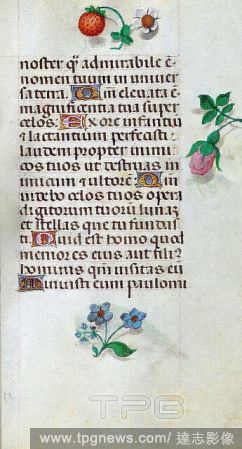 noster qͫ admirabile ē
nomen tuum in univer
sa terra. Qm elevata ē
magnificentia tua super
celos: Ex ore infantiū
et lactantium perfecisti
laudem propter inimi
cos tuos ut destruas in
imicum et ultorē Qm vi
debo celos tuos opera
digitorum tuorū lunaz
et stellas que tu fundas
ti Quid est homo quod
memor es eius aut fili9
hominis qm visitas eū
Minuisti eum paulomi
TPG
www.tpgnews.com/達志影像